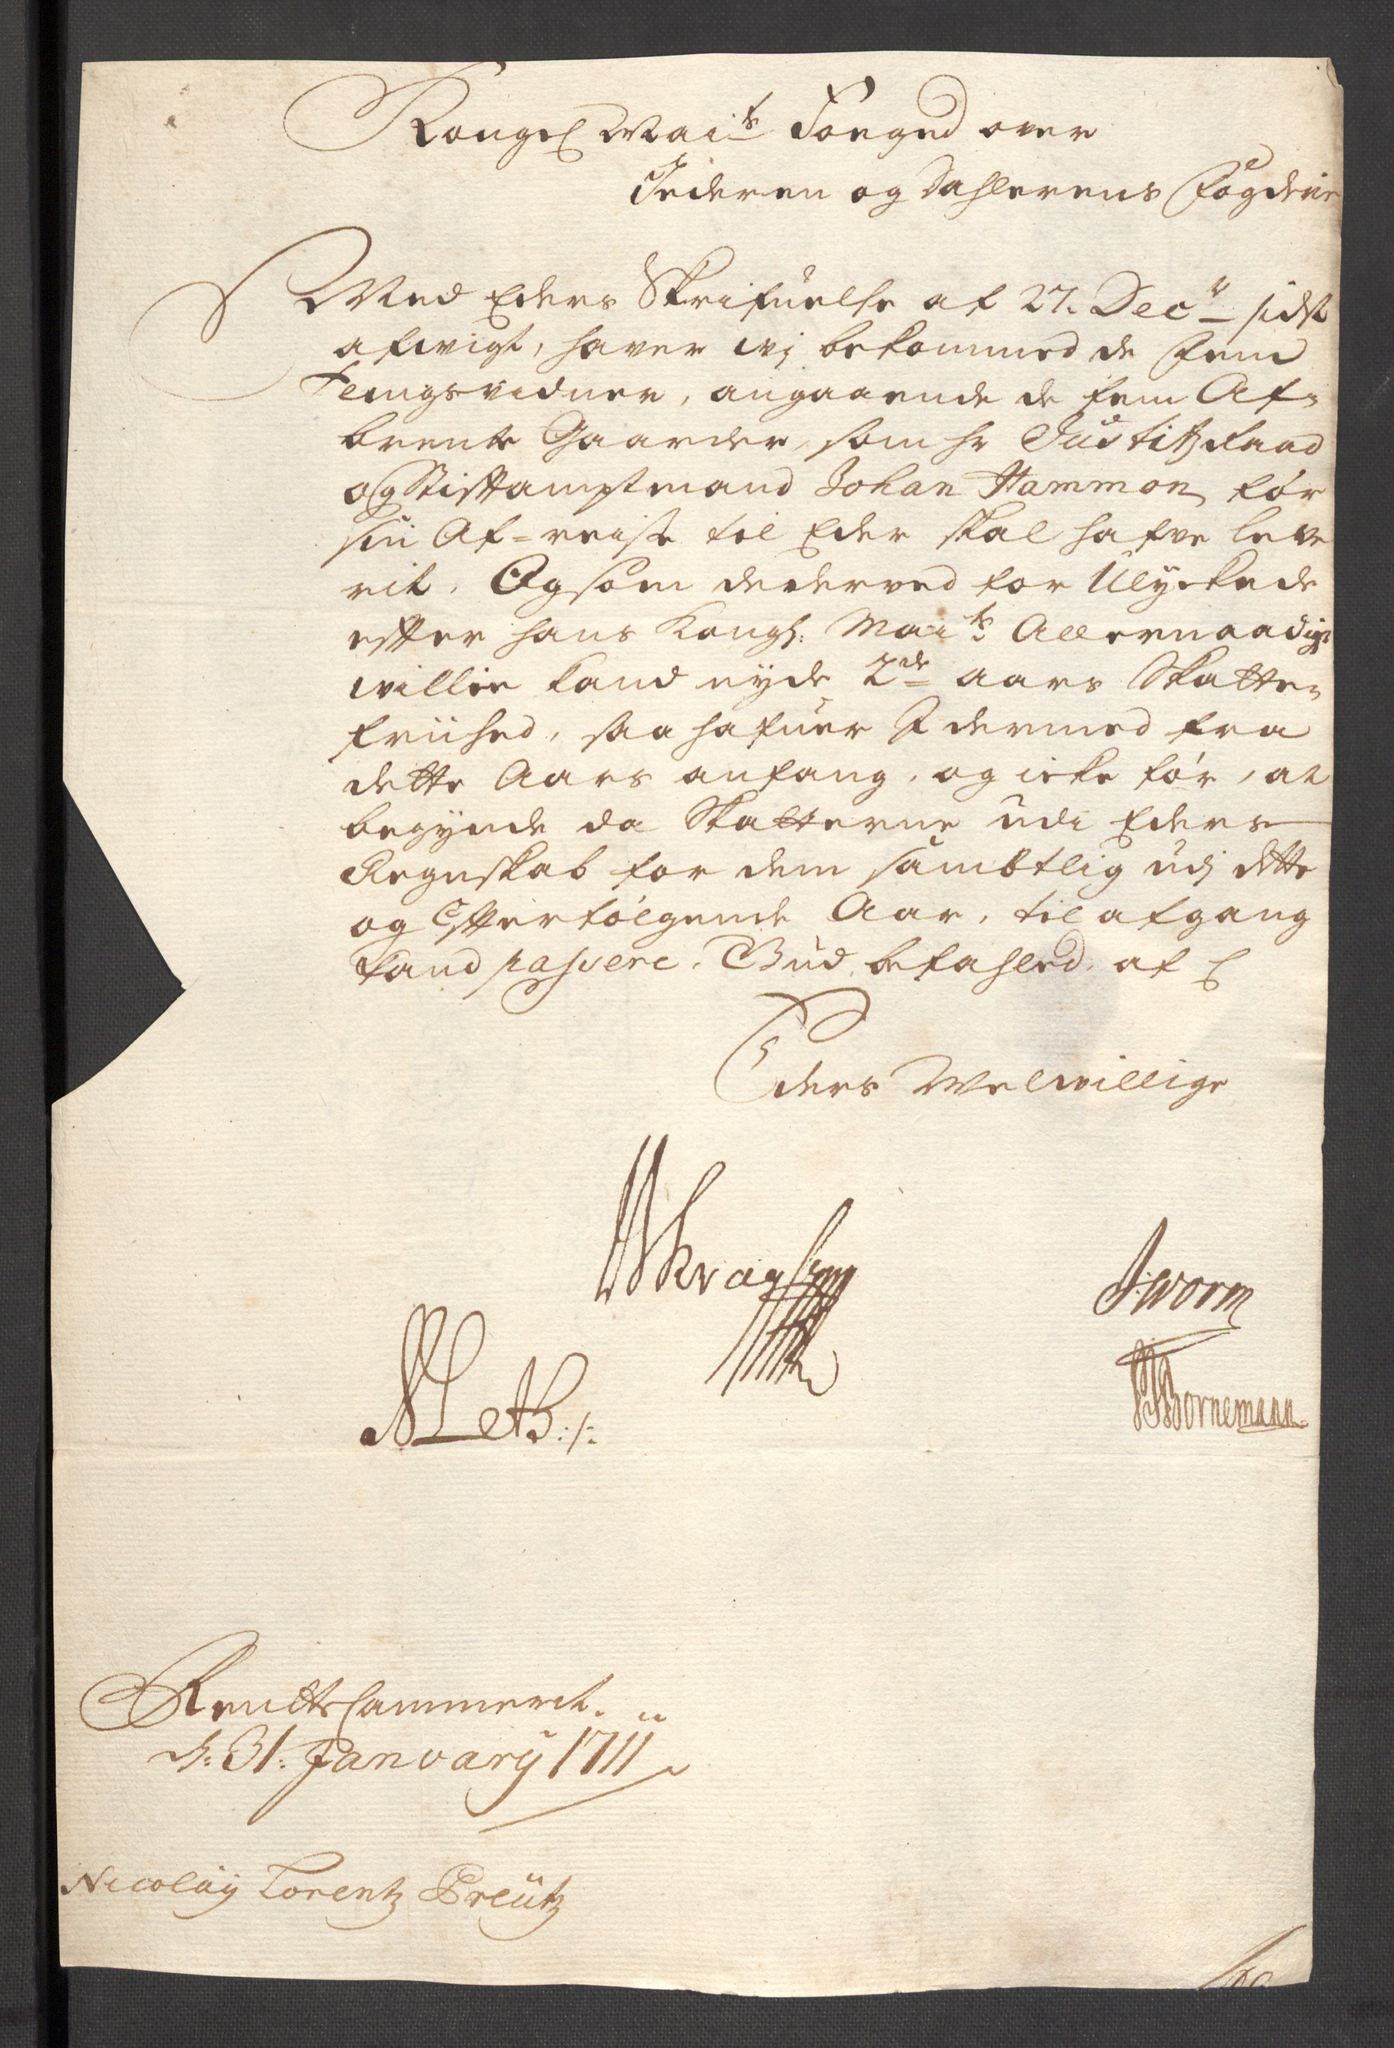 Kongel Mai:ts Foeged over
Jederen og Dahlerens Fogderie
Med Eders Skrifuelse af 27. Dec:r sidst
afwigt, haver wj bekommed de Fem
Tingsvidner, angaaende de fem Af-
brente Gaarder, som hr Justitz Raad
og Stiftamptmand Johan Hammon før
sin Af-reise til Eder skal hafve leve
rit. Og som de derved for Ulyckede
efter hans Kongl: Mai:ts Allernaadigst
willie kand nyde 2de aars Skatte-
friihed, saa hafuer I dermed fra
dette Aars anfang, og icke før, at
begynde da Skatterne udi Eders
Regnskab for dem sambtlig udj dette
og Efterfølgende Aar, til afgang
kand passere. Gud befahled, af
Eders Welwillige
Worm
Bornemann
Rentte Cammerit.
d: 31: Januarÿ 1711
Nicolaÿ Lorentz Preütz